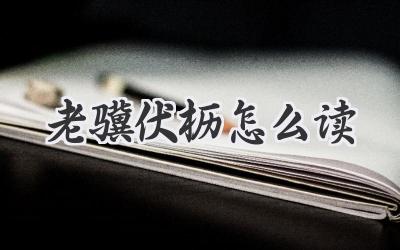 老骥伏枥怎么读